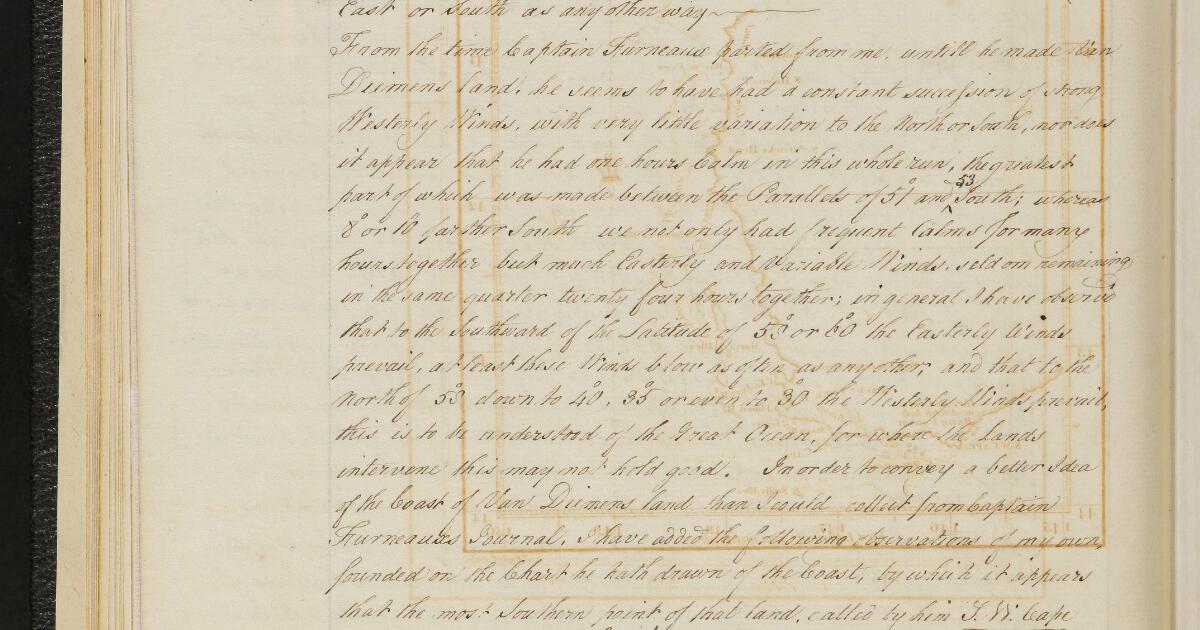 East or South as any other way
From the time Captain Furneaux parted from me, untill he made Van
Diemens land, he seems to have had a constant succession of strong
Westerly Winds, with very little variation to the North or South, nor does
it appear that he had one hours Calm in this whole run, the greatest
part of which was made between the Parallels of 51° and 53 South; whereas
8° or 10° farther South we not only had frequent Calms for many
hours together but much Easterly and Variable Winds, seldom remaining
in the same quarter twenty four hours together; in general I have observed
that to the Southward of the Latitude of 58° or 60° the Easterly Winds
prevail, at least these Winds blow as often as any other, and that to the
North of 58° down to 40°, 35° or even to 30° the Westerly Winds prevail,
this is to be understood of the Great Ocean, for where the Lands
intervene this may not hold good. In order to convey a better Idea
of the Coast of Van Diemens land than I could collect from Captain
Furneauxs Journal, I have added the following observations of my own,
founded on the Chart he hath drawn of the Coast, by which it appears
that the most Southern point of that land, called by him S. W. Cape